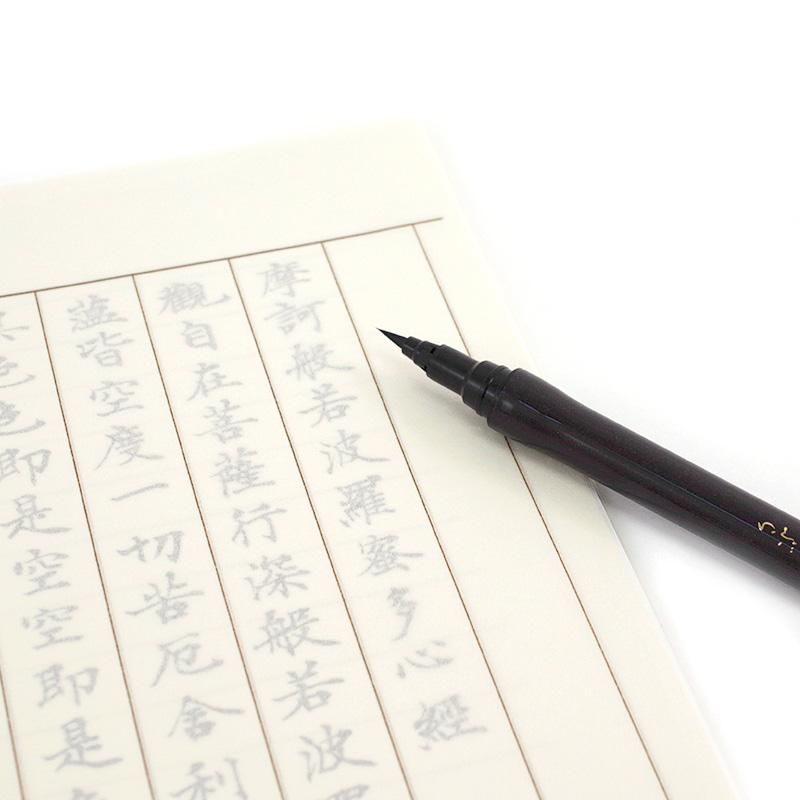 摩訶般若波羅蜜多心經
觀自在菩薩行深般若波
蘊皆空度一切苦厄舍利
色色即是空空即是